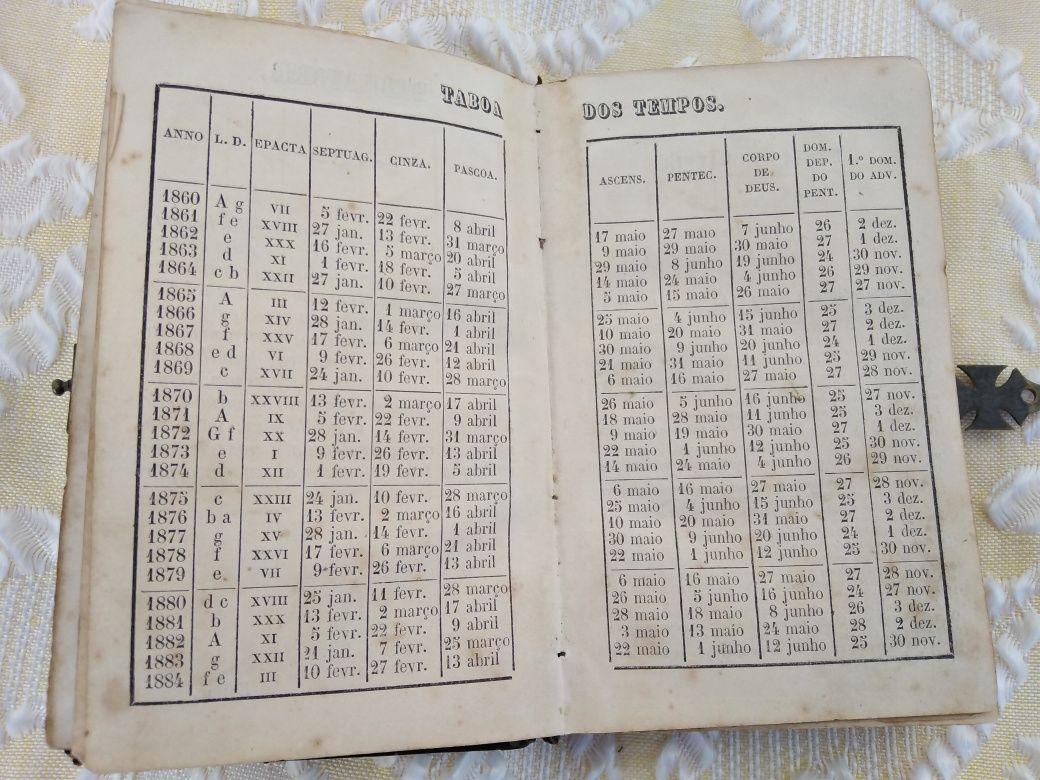 TABOA
ANNO L. D. EPACTA SEPTUAG. CINZA. PASCOA.
1860 A g VII 5 fevr. 22 fevr. 8 abril
1861 f e XVIII 27 jan. 13 fevr. 31 março
1862 e XXX 16 fevr. 5 março 20 abril
1863 d XI 1 fevr. 18 fevr. 5 abril
1864 c b XXII 27 jan. 10 fevr. 27 março
1865 A III 12 fevr. 1 março 16 abril
1866 g XIV 28 jan. 14 fevr. 1 abril
1867 f XXV 17 fevr. 6 março 21 abril
1868 e d VI 9 fevr. 26 fevr. 12 abril
1869 c XVII 24 jan. 10 fevr. 28 março
1870 b XXVIII 13 fevr. 2 março 17 abril
1871 A IX 5 fevr. 22 fevr. 9 abril
1872 G f XX 28 jan. 14 fevr. 31 março
1873 e I 9 fevr. 26 fevr. 13 abril
1874 d XII 1 fevr. 19 fevr. 5 abril
1875 c XXIII 24 jan. 10 fevr. 28 março
1876 b a IV 13 fevr. 2 março 16 abril
1877 g XV 28 jan. 14 fevr. 1 abril
1878 f XXVI 17 fevr. 6 março 21 abril
1879 e VII 9 fevr. 26 fevr. 13 abril
1880 d c XVIII 25 jan. 11 fevr. 28 março
1881 b XXX 13 fevr. 2 março 17 abril
1882 A XI 5 fevr. 22 fevr. 9 abril
1883 g XXII 21 jan. 7 fevr. 25 março
1884 f e III 10 fevr. 27 fevr. 13 abril
DOS TEMPOS.
ASCENS. PENTEC. CORPO DE DEUS. DOM. DEP. DO PENT. 1.º DOM. DO ADV.
17 maio 27 maio 7 junho 26 2 dez.
9 maio 29 maio 30 maio 27 1 dez.
29 maio 8 junho 19 junho 24 30 nov.
14 maio 24 maio 4 junho 26 29 nov.
5 maio 15 maio 26 maio 27 27 nov.
25 maio 4 junho 15 junho 25 3 dez.
10 maio 20 maio 31 maio 27 2 dez.
30 maio 9 junho 20 junho 24 1 dez.
21 maio 31 maio 11 junho 25 29 nov.
6 maio 16 maio 27 maio 27 28 nov.
26 maio 5 junho 16 junho 25 27 nov.
18 maio 28 maio 11 junho 25 3 dez.
9 maio 19 maio 30 maio 27 1 dez.
22 maio 1 junho 12 junho 25 30 nov.
14 maio 24 maio 4 junho 26 29 nov.
6 maio 16 maio 27 maio 27 28 nov.
25 maio 4 junho 15 junho 25 3 dez.
10 maio 20 maio 31 maio 27 2 dez.
30 maio 9 junho 20 junho 24 1 dez.
22 maio 1 junho 12 junho 25 30 nov.
6 maio 16 maio 27 maio 27 28 nov.
26 maio 5 junho 16 junho 24 27 nov.
28 maio 18 maio 8 junho 26 3 dez.
3 maio 13 maio 24 maio 28 2 dez.
22 maio 1 junho 12 junho 25 30 nov.